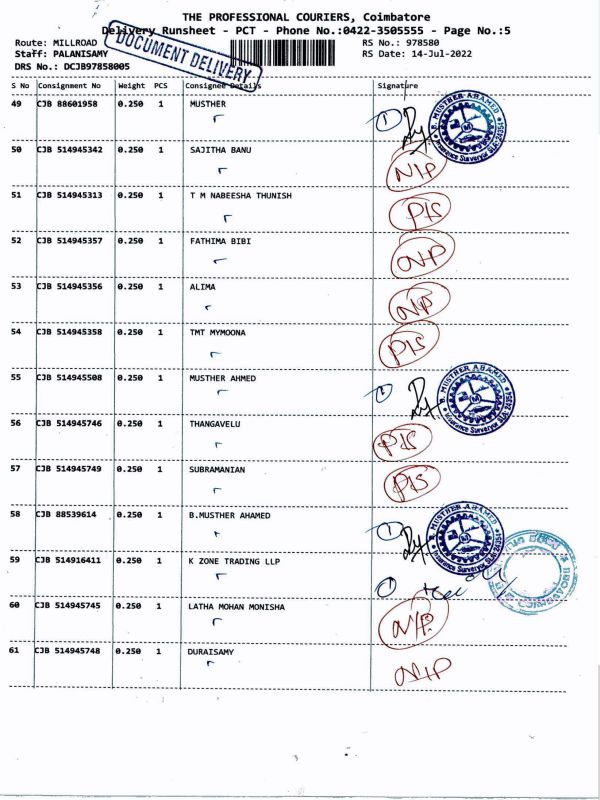 THE PROFESSIONAL COURIERS, Coimbatore
Delivery Runsheet - PCT - Phone No.:0422-3505555 - Page No.:5
Route: MILLROAD RS No.: 978580
Staff: PALANISAMY RS Date: 14-Jul-2022
DRS No.: DCJB97858005
DOCUMENT DELIVERY
S No Consignment No Weight PCS Consignee Details Signature
49 CJB 88601958 0.250 1 MUSTHER 1
B. MUSTHER AHAMED
Insurance Surveyor
50 CJB 514945342 0.250 1 SAJITHA BANU N/P
51 CJB 514945313 0.250 1 T M NABEESHA THUNISH P/S
52 CJB 514945357 0.250 1 FATHIMA BIBI N/P
53 CJB 514945356 0.250 1 ALIMA N/P
54 CJB 514945358 0.250 1 TMT MYMOONA P/S
55 CJB 514945508 0.250 1 MUSTHER AHMED
B. MUSTHER AHAMED
Insurance Surveyor
56 CJB 514945746 0.250 1 THANGAVELU P/S
57 CJB 514945749 0.250 1 SUBRAMANIAN P/S
58 CJB 88539614 0.250 1 B.MUSTHER AHAMED 1
B. MUSTHER AHAMED
Insurance Surveyor
59 CJB 514916411 0.250 1 K ZONE TRADING LLP 1
60 CJB 514945745 0.250 1 LATHA MOHAN MONISHA N/P
61 CJB 514945748 0.250 1 DURAISAMY N/P